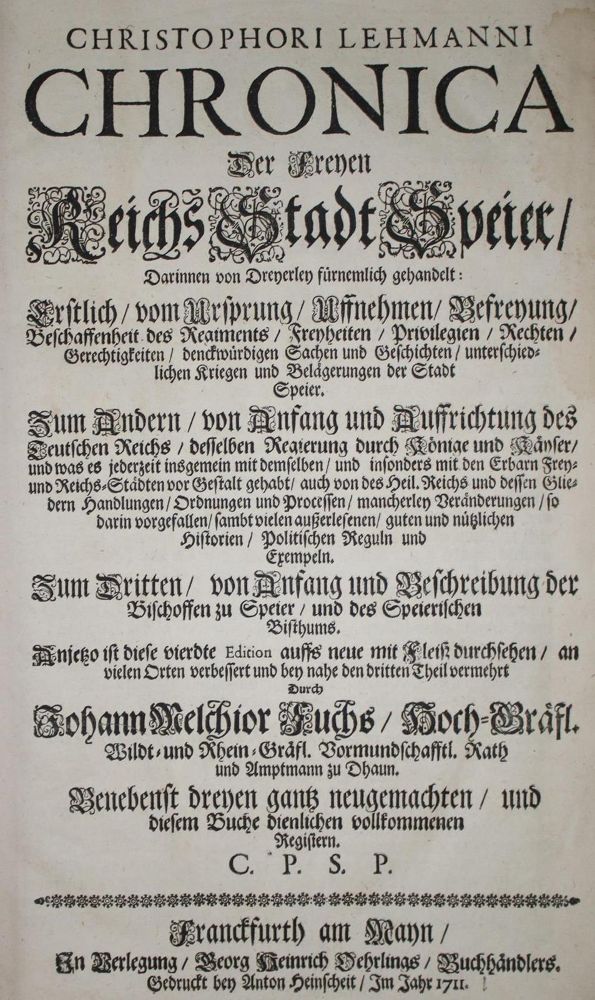 CHRISTOPHORI LEHMANNI
CHRONICA
Der Freyen
Reichs Stadt Speier/
Darinnen von Dreyerley fürnemlich gehandelt:
Erstlich/ vom Ursprung/ Uffnehmen/ Befreyung/
Beschaffenheit des Regiments/ Freyheiten/ Privilegien/ Rechten/
Gerechtigkeiten/ denckwürdigen Sachen und Geschichten/ unterschied-
lichen Kriegen und Belägerungen der Stadt
Speier.
Zum Andern/ von Anfang und Auffrichtung des
Teutschen Reichs/ desselben Regierung durch Könige und Käyser/
und was es jederzeit insgemein mit demselben/ und insonders mit den Erbarn Frey-
und Reichs-Städten vor Gestalt gehabt/ auch von des Heil. Reichs und dessen Glie-
dern Handlungen/ Ordnungen und Processen/ mancherley Veränderungen/ so
darin vorgefallen/ sambt vielen außerlesenen/ guten und nützlichen
Historien/ Politischen Reguln und
Exempeln.
Zum Dritten/ von Anfang und Beschreibung der
Bischoffen zu Speier/ und des Speierischen
Bisthums.
Anjetzo ist diese vierdte Edition auffs neue mit Fleiß durchsehen/ an
vielen Orten verbessert und bey nahe den dritten Theil vermehrt
Durch
Johann Melchior Fuchs/ Hoch-Gräfl.
Wildt- und Rhein-Gräfl. Vormundschafftl. Rath
und Amptmann zu Dhaun.
Benebenst dreyen gantz neugemachten/ und
diesem Buche dienlichen vollkommenen
Registern.
C. P. S. P.
Franckfurth am Mayn/
In Verlegung/ Georg Heinrich Oehrlings/ Buchhändlers.
Gedruckt bey Anton Heinscheit/ Im Jahr 1711.